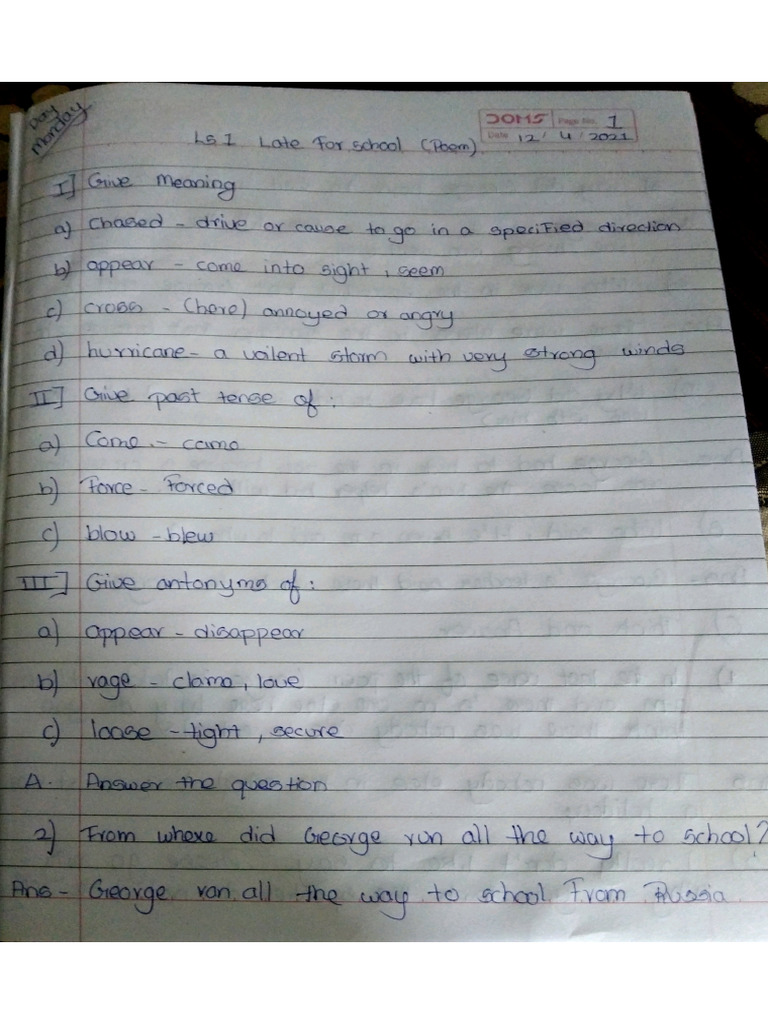 Day
Monday
DOMS Page No. 1
Date 12/4/2021
Ls 1 Late For school (Poem)
I] Give Meaning
a) Chased - drive or cause to go in a specified direction
b) appear - come into sight, seem
c) cross - (here) annoyed or angry
d) hurricane - a voilent storm with very strong winds
II] Give past tense of:
a) Come - came
b) Force - Forced
c) blow - blew
III] Give antonyms of:
a) appear - disappear
b) rage - clame, love
c) loose - tight, secure
A. Answer the question
2) From where did George run all the way to school?
Ans - George ran all the way to school From Russia